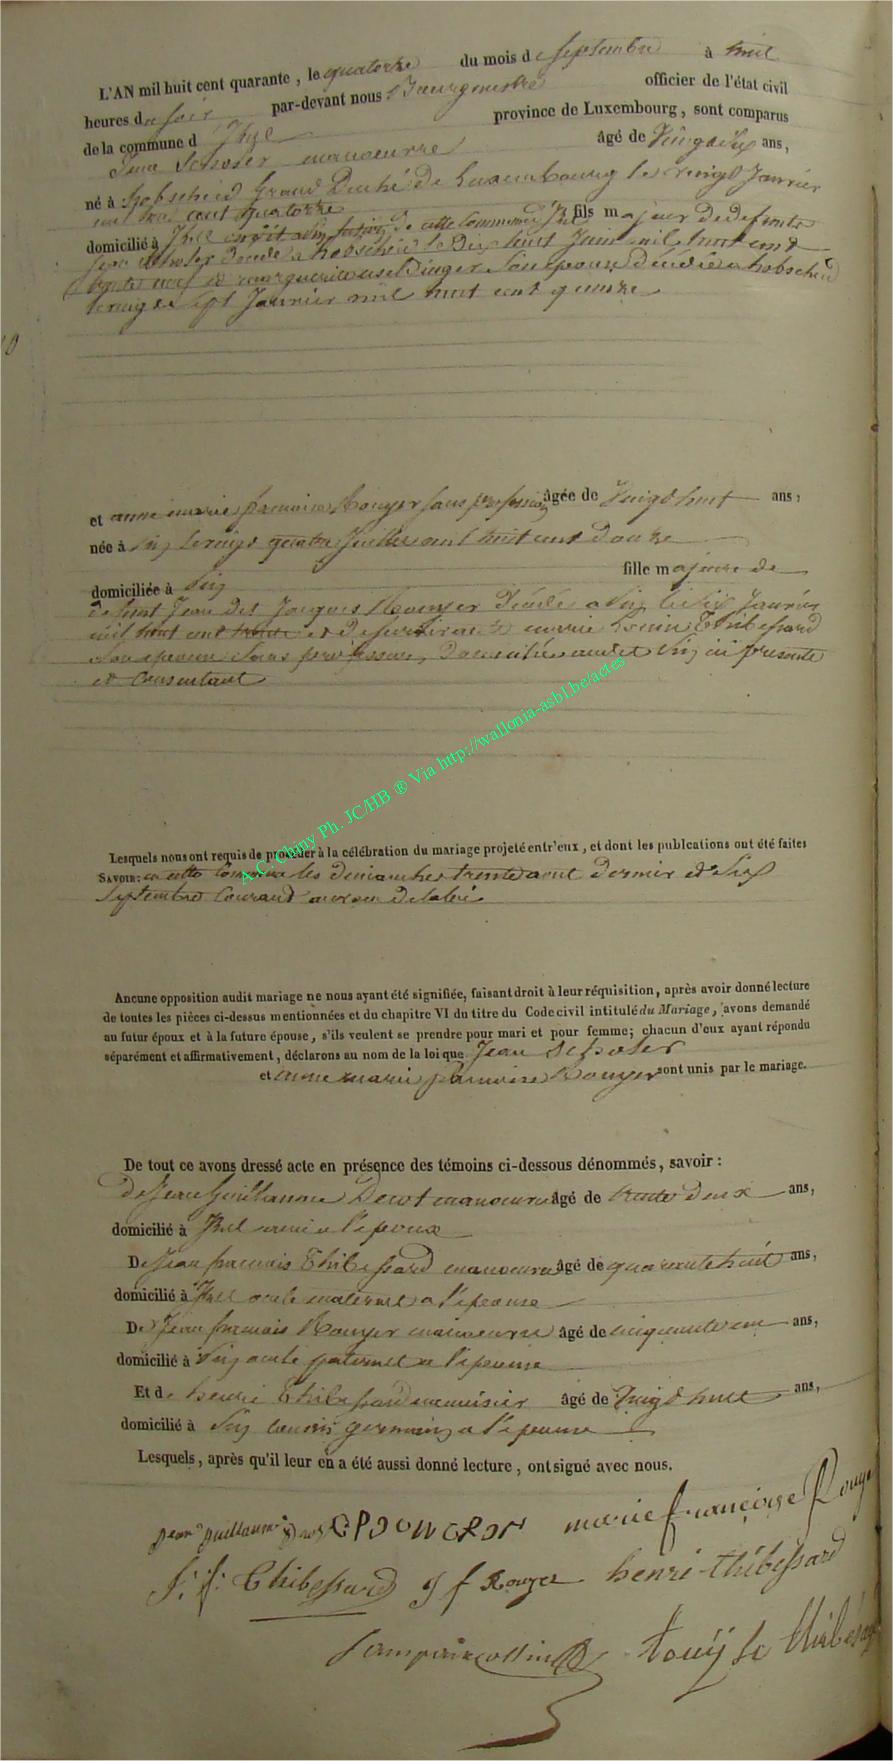 L'AN mil huit cent quarante, le quatorze du mois de septembre à huit
heures du soir par-devant nous Bourgmestre officier de l'état civil
de la commune d'Izel province de Luxembourg, sont comparus
Jean Scholer manoeuvre âgé de Vingt six ans,
né à hobscheid Grand Duché de Luxembourg le vingt Janvier
mil huit cent quatorze
domicilié à Izel de cette Commune fils majeur de defunts
Jean Scholer décédé a hobscheid le Dix huit Juin mil huit cent
trente neuf et marguerite son épouse Décédée a hobscheid
le vingt sept Janvier mil huit cent quinze
et anne marie francoise Rouyer sans profession âgée de Vingt huit ans,
née à Pin le vingt quatre Juillet mil huit cent douze
domiciliée à Pin fille majeure de
defunt Jean Jacques Rouyer Décédé a Pin le six Janvier
mil huit cent trente et de survivante marie Thibessard
son épouse sans profession, Domiciliée audit Pin ici presente
et Consentante
Lesquels nous ont requis de procéder à la célébration du mariage projeté entr'eux, et dont les publcations ont été faites
SAVOIR: en cette Commune les dimanches trente aout dernier et six
Septembre Courant
Aucune opposition audit mariage ne nous ayant été signifiée, faisant droit à leur réquisition, après avoir donné lecture
de toutes les pièces ci-dessus mentionnées et du chapitre VI du titre du Code civil intitulé du Mariage, avons demandé
au futur époux et à la future épouse, s'ils veulent se prendre pour mari et pour femme; chacun d'eux ayant répondu
séparément et affirmativement, déclarons au nom de la loi que Jean Scholer
et anne marie francoise Rouyer sont unis par le mariage.
De tout ce avons dressé acte en présence des témoins ci-dessous dénommés, savoir:
De Jean Guillaume manoeuvre âgé de trente deux ans,
domicilié à Izel ami a l'époux
De Jean francois Thibessard manoeuvre âgé de quarante huit ans,
domicilié à Izel oncle maternel a l'épouse
De Jean francois Rouyer manoeuvre âgé de cinquante un ans,
domicilié à Pin oncle paternel a l'épouse
Et de henri Thibessard menuisier âgé de Vingt huit ans,
domicilié à Pin cousin germain a l'épouse
Lesquels, après qu'il leur en a été aussi donné lecture, ont signé avec nous.
Jean Guillaume marie françoise Rouyer
J. f. Thibessard J f Rouyer henri thibessard
A.C. Chiny Ph. JC/HB ® Via http://wallonia-asbl.be/actes